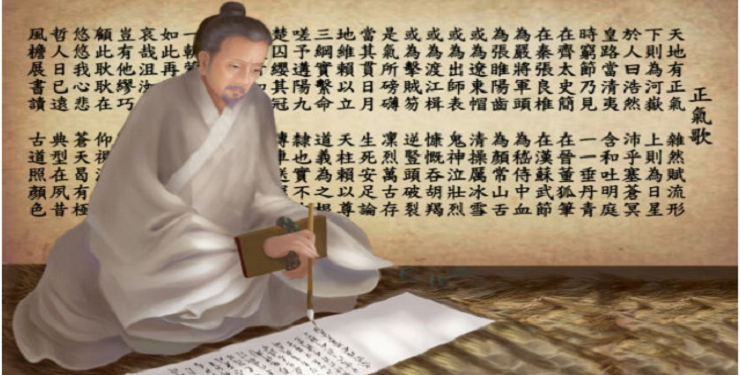 正氣歌
天地有正氣 雜然賦流形
下則為河嶽 上則為日星
於人曰浩然 沛乎塞蒼冥
皇路當清夷 含和吐明庭
時窮節乃見 一一垂丹青
在齊太史簡 在晉董狐筆
在秦張良椎 在漢蘇武節
為嚴將軍頭 為嵇侍中血
為張睢陽齒 為顏常山舌
或為遼東帽 清操厲冰雪
或為出師表 鬼神泣壯烈
或為渡江楫 慷慨吞胡羯
或為擊賊笏 逆豎頭破裂
是氣所磅礴 凜烈萬古存
當其貫日月 生死安足論
地維賴以立 天柱賴以尊
三綱實繫命 道義為之
嗟予遘陽九 隸也實不
楚囚纓其冠 傳車送
一
如此再
哀哉沮
豈有他繆巧
顧此耿耿在 仰
悠悠我心悲 蒼天曷有極
哲人日已遠 典型在夙昔
風檐展書讀 古道照顏色